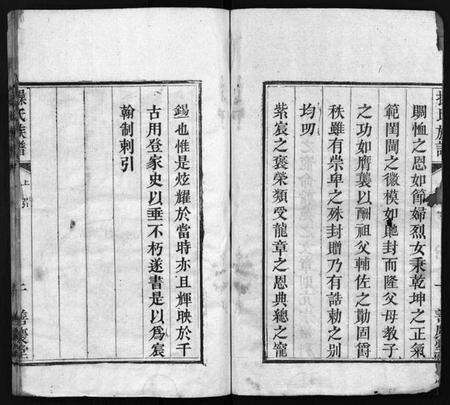 賙恤之恩如節婦烈女秉乾坤之正氣
範閨閫之徽模如貤封而隆父母教子
之功如廕襲以酬祖父輔佐之勛固爵
秩雖有崇卑之殊封贈乃有誥勅之别
均叨
紫宸之褒榮類受龍章之恩典總之寵
錫也惟是炫耀於當時亦且輝映於千
古用登家史以垂不朽遂書是以為宸
翰制剌引
操氏族譜
上
善慶堂